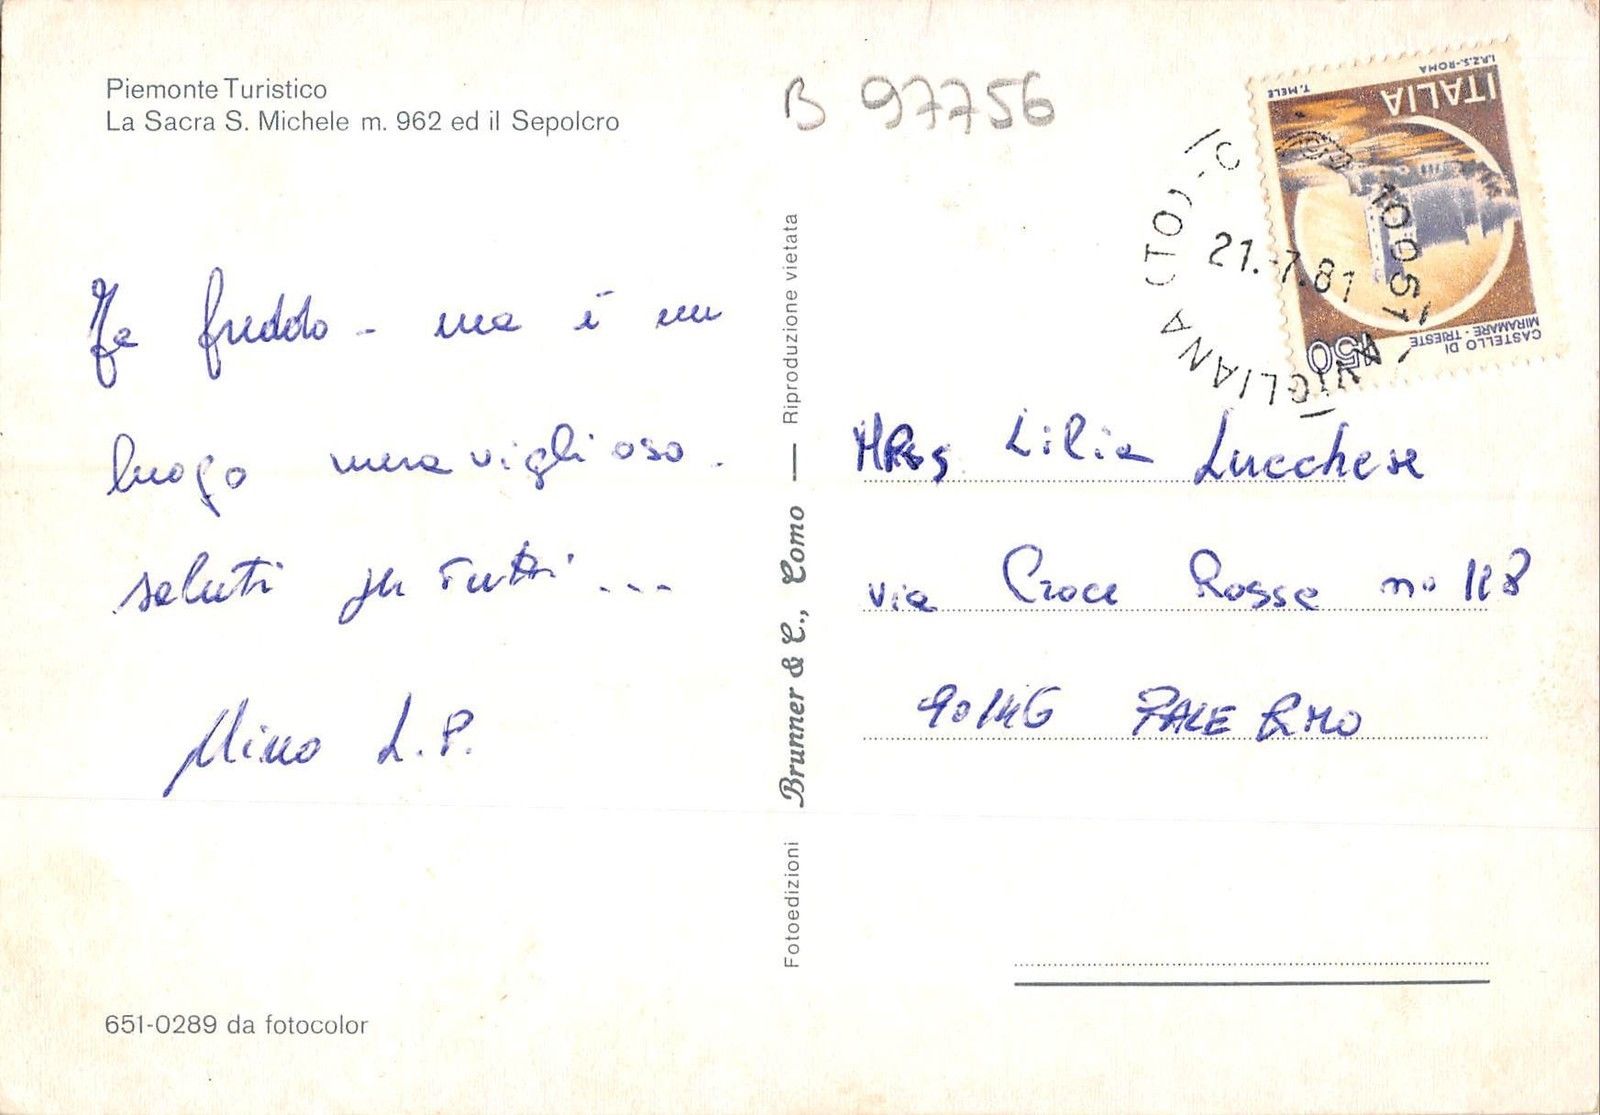 Piemonte Turistico
La Sacra S. Michele m. 962 ed il Sepolcro
B 97756
Fa freddo - ma è un
luogo meraviglioso.
saluti per Tutti ...
Mino L.P.
651-0289 da fotocolor
Fotoedizioni Brunner & C., Como — Riproduzione vietata
I.P.Z.S.-ROMA T. MELE
ITALIA
CASTELLO DI
MIRAMARE - TRIESTE
450
10051 AVIGLIANA (TO)
21.-7.81
Lilia Lucchese
via Croce Rossa no 118
90146 PALERMO